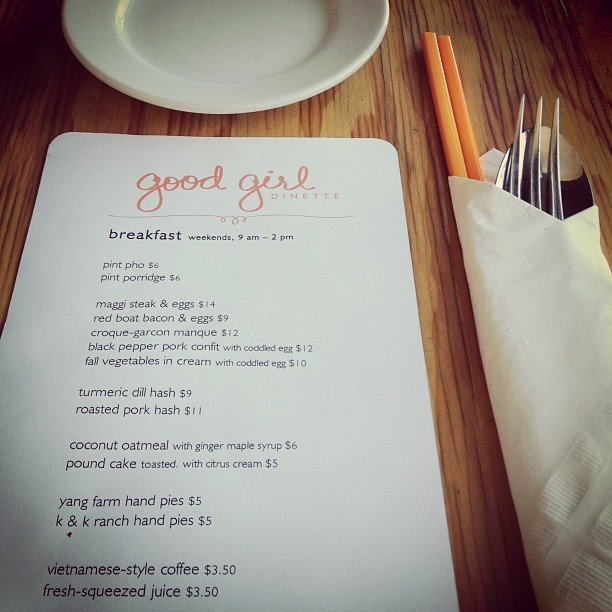 good girl
DINETTE
breakfast weekends, 9 am – 2 pm
pint pho $6
pint porridge $6
maggi steak & eggs $14
red boat bacon & eggs $9
croque-garcon manque $12
black pepper pork confit with coddled egg $12
fall vegetables in cream with coddled egg $10
turmeric dill hash $9
roasted pork hash $11
coconut oatmeal with ginger maple syrup $6
pound cake toasted. with citrus cream $5
yang farm hand pies $5
k & k ranch hand pies $5
vietnamese-style coffee $3.50
fresh-squeezed juice $3.50